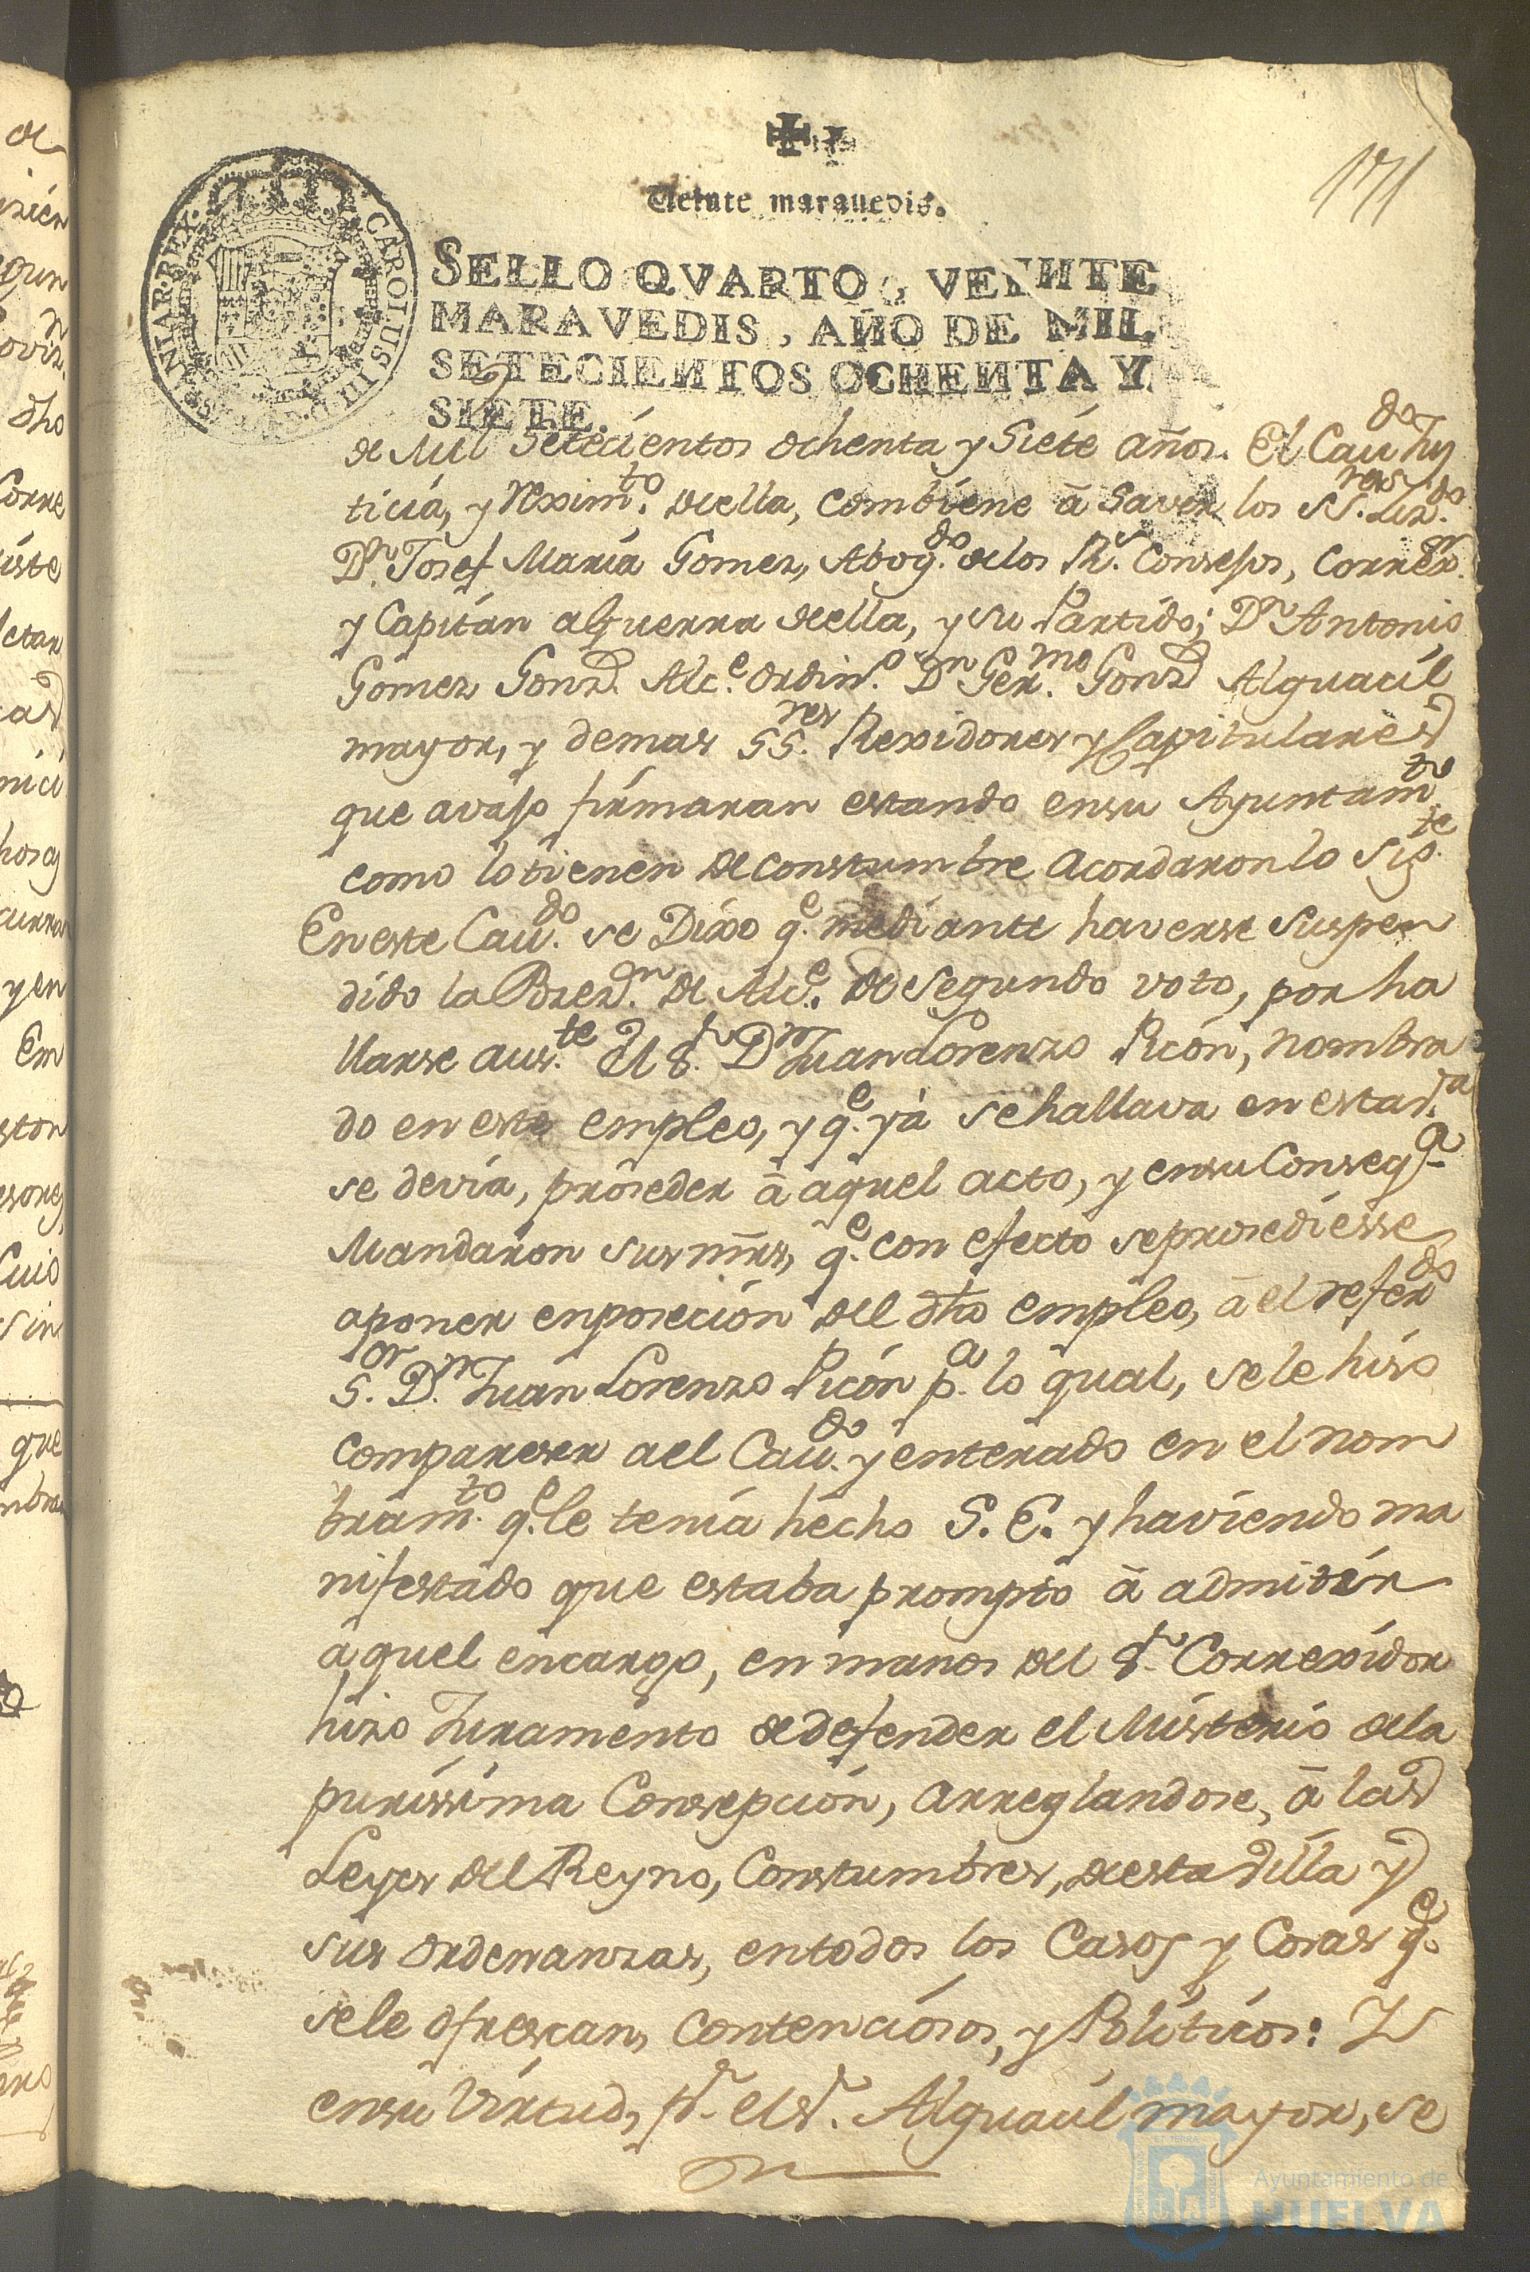 171
Veinte maravedis.
CAROLUS III D. G. HISPANIAR. REX.
SELLO QVARTO, VEINTE
MARAVEDIS, AÑO DE MIL
SETECIENTOS OCHENTA Y
SIETE.
de Mil Setecientos ochenta y Siete años. El Caudo Jus
ticia, y Reximto. de ella, combiene â saver los SSres. Lizdo.
Dn. Josef Maria Gomez, Abogdo. de los Rs. Consejos, Correxor.
y Capitán a Guerra de ella, y su Partido; Dn. Antonio
Gomez Gonz. Alce. ordino. Dn Germo. Gonz Alguacil
mayor, y demas SSres. Rexidores y Capitulares
que avajo firmaran estando en su Ayuntamto.
como lo tienen de constumbre acordaron lo Sigte.
En este Caudo. se Dixo qe. mediante haverse suspen
dido la Pozezn. de Alce. de segundo voto, por ha
llarse auste. el Sr. Dn Juan Lorenzo Picón, nombra
do en este empleo, y qe. yá se hallava en esta va.
se devia, proseder â aquel acto, y en su Conseqa.
Mandaron sus mrs, qe. con efecto se prosediesse
a poner en poseción del dho empleo, â el referdo
Sor. Dn. Juan Lorenzo Picón pa. lo qual, se le hiso
compareser a el Caudo. y enterado en el nom
bramto. qe. le tenia hecho S. E. y haviendo ma
nifestado que estaba prompto â admitir
aquel encargo, en manos del Sr. Correxidor
hizo Juramento de defender el Misterio de la
purissima Consepción, arreglandose, â las
Leyes del Reyno, Constumbres, de esta Villa y
sus ordenanzas, en todos los Casos y Cosas qe.
se le ofrescan, contenciosos, y Politicos: Y
en su Virtud, pr. el Sr. Alguacil mayor, se
Ayuntamiento de
HUELVA